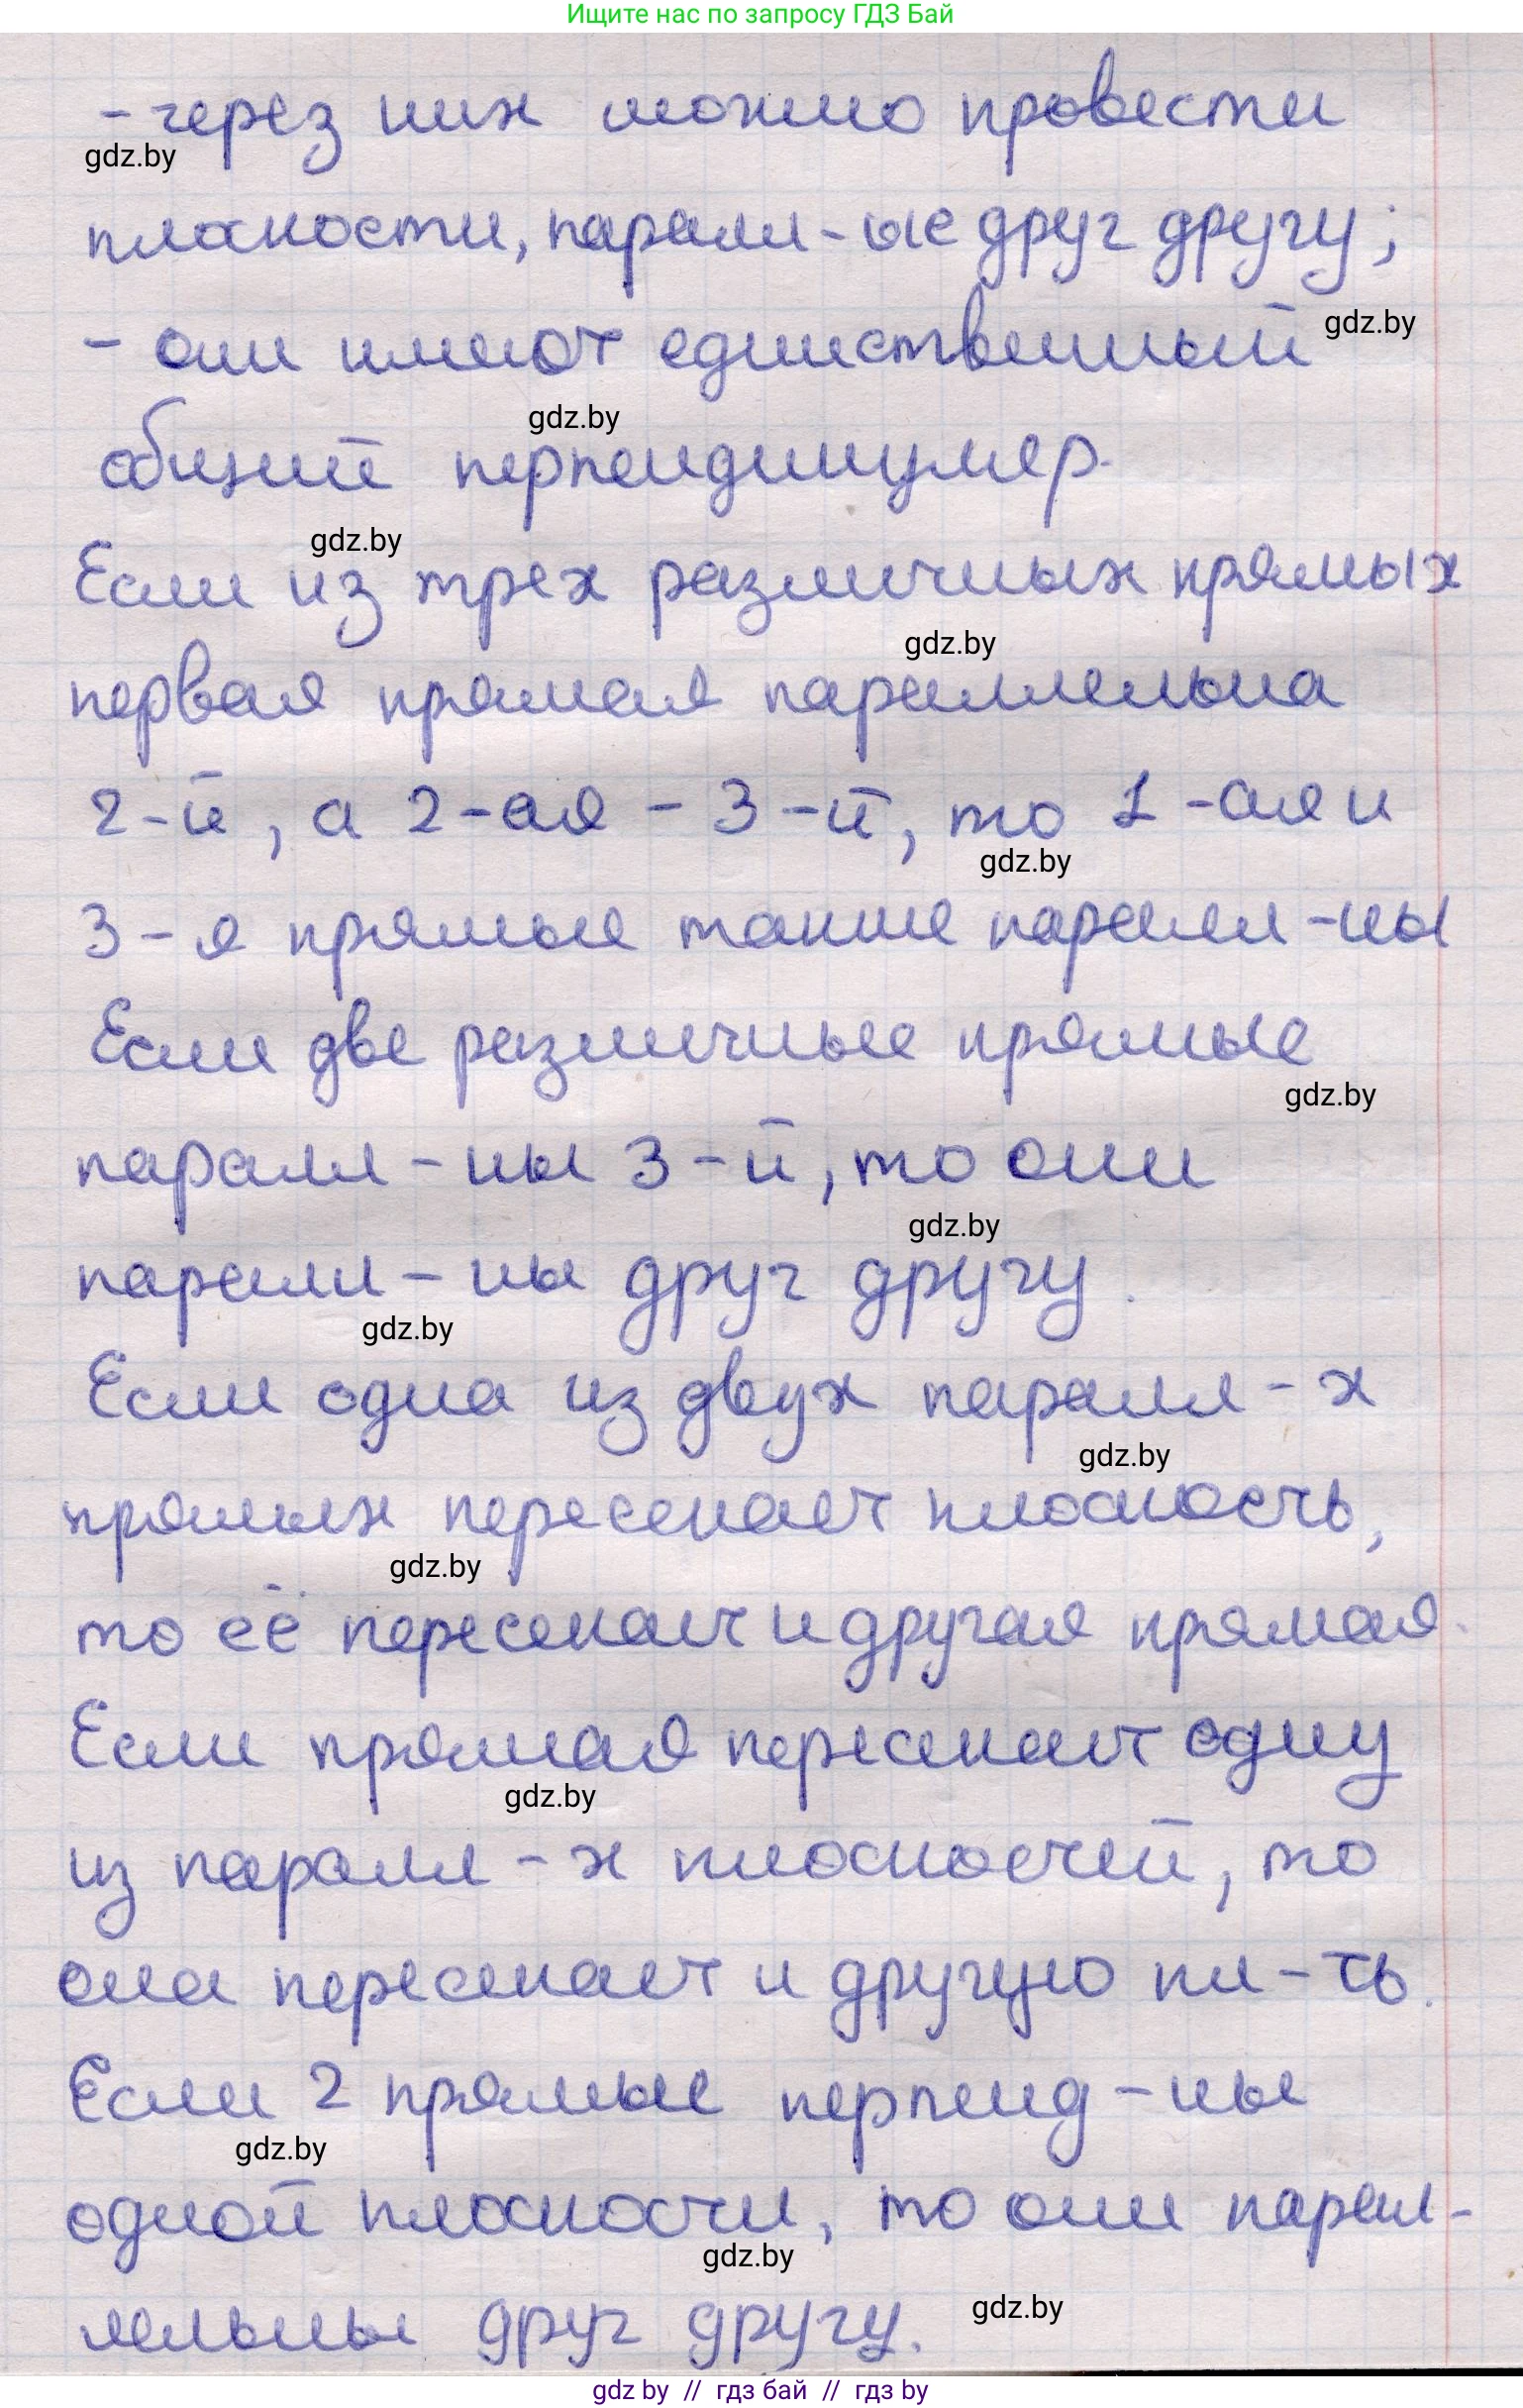 Ищите нас по запросу ГДЗ Бай
- через них можно провести
gdz.by
плоскости, паралл-ые друг другу;
- они имеют единственный
gdz.by
общий перпендикуляр.
gdz.by
gdz.by
Если из трех различных прямых
gdz.by
первая прямая параллельна
2-й, а 2-ая - 3-й, то 1-ая и
gdz.by
3-я прямые также паралл-ны
Если две различные прямые
gdz.by
паралл-ны 3-й, то они
gdz.by
паралл-ны друг другу.
gdz.by
Если одна из двух паралл-х
gdz.by
прямых пересекает плоскость,
gdz.by
то её пересекает и другая прямая.
Если прямая пересекает одну
gdz.by
из паралл-х плоскостей, то
она пересекает и другую пл-ть.
Если 2 прямые перпенд-ны
gdz.by
одной плоскости, то они парал-
gdz.by
лельны друг другу.
gdz.by
gdz by // гдз бай // гдз by